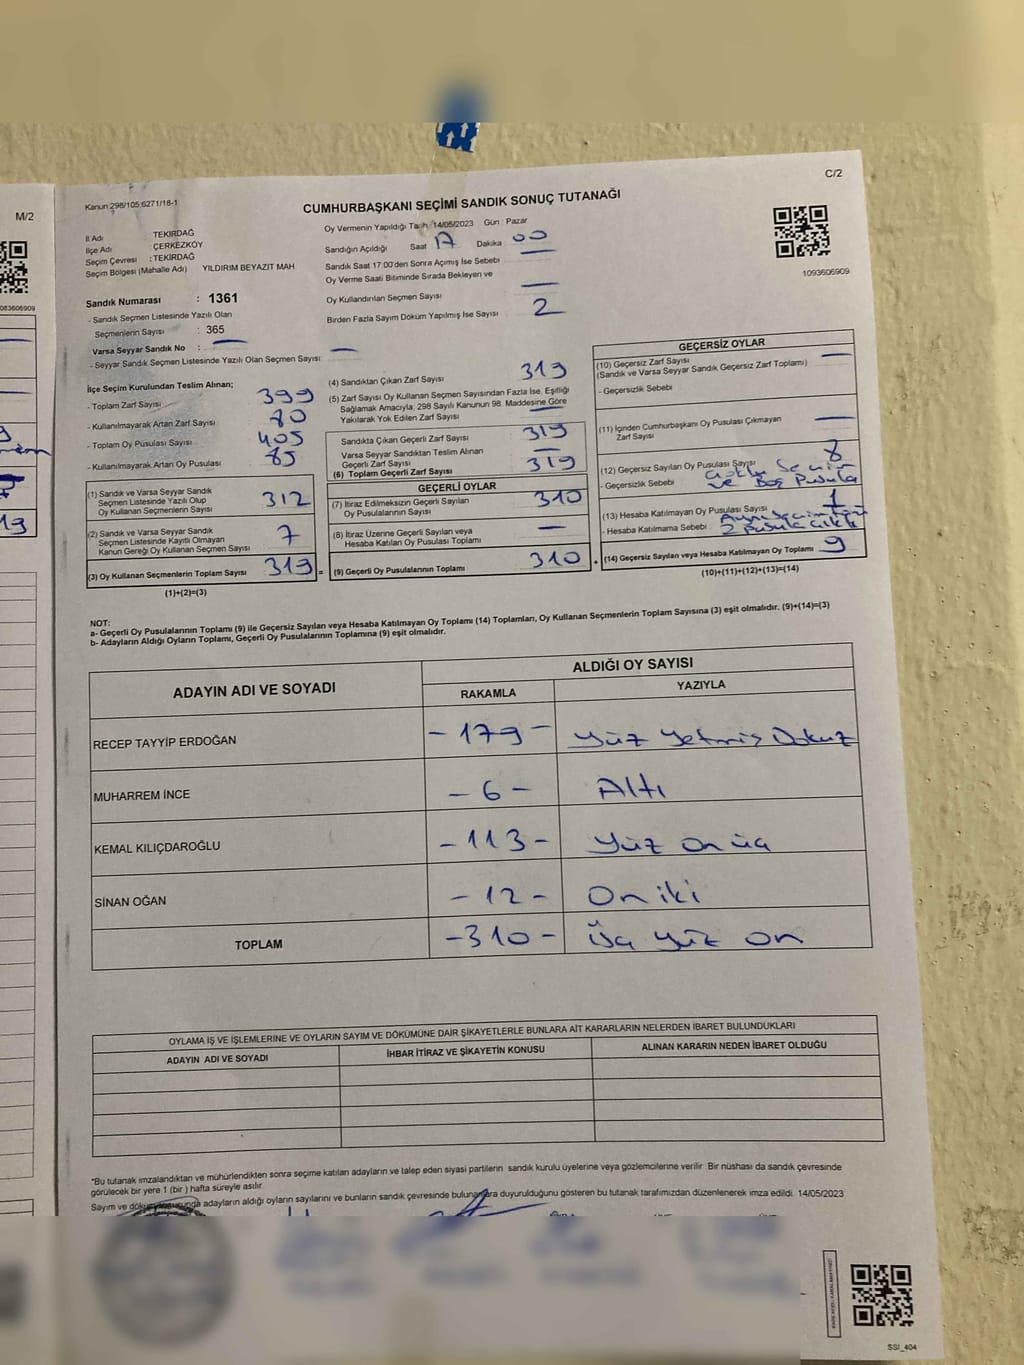 M/2
C/2
Kanun:298/105;6271/18-1
CUMHURBAŞKANI SEÇİMİ SANDIK SONUÇ TUTANAĞI
İl Adı : TEKİRDAĞ
İlçe Adı : ÇERKEZKÖY
Seçim Çevresi : TEKİRDAĞ
Seçim Bölgesi (Mahalle Adı) YILDIRIM BEYAZIT MAH.
Oy Vermenin Yapıldığı Tarih :14/05/2023 Gün : Pazar
Sandığın Açıldığı Saat 17 Dakika 00
Sandık Saat 17:00'den Sonra Açımış İse Sebebi
Oy Verme Saati Bitiminde Sırada Bekleyen ve
Oy Kullandırılan Seçmen Sayısı —
Birden Fazla Sayım Döküm Yapılmış İse Sayısı 2
1093606909
Sandık Numarası : 1361
- Sandık Seçmen Listesinde Yazılı Olan
Seçmenlerin Sayısı : 365
Varsa Seyyar Sandık No : —
- Seyyar Sandık Seçmen Listesinde Yazılı Olan Seçmen Sayısı: —
İlçe Seçim Kurulundan Teslim Alınan;
- Toplam Zarf Sayısı 399
- Kullanılmayarak Artan Zarf Sayısı 80
- Toplam Oy Pusulası Sayısı 405
- Kullanılmayarak Artan Oy Pusulası 85
(1) Sandık ve Varsa Seyyar Sandık
Seçmen Listesinde Yazılı Olup
Oy Kullanan Seçmenlerin Sayısı 312
(2) Sandık ve Varsa Seyyar Sandık
Seçmen Listesinde Kayıtlı Olmayan
Kanun Gereği Oy Kullanan Seçmen Sayısı 7
(3) Oy Kullanan Seçmenlerin Toplam Sayısı 319 =
(1)+(2)=(3)
(4) Sandıktan Çıkan Zarf Sayısı 319
(5) Zarf Sayısı Oy Kullanan Seçmen Sayısından Fazla İse, Eşitliği
Sağlamak Amacıyla, 298 Sayılı Kanunun 98. Maddesine Göre
Yakılarak Yok Edilen Zarf Sayısı —
Sandıkta Çıkan Geçerli Zarf Sayısı 319
Varsa Seyyar Sandıktan Teslim Alınan
Geçerli Zarf Sayısı —
(6) Toplam Geçerli Zarf Sayısı 319
GEÇERLİ OYLAR
(7) İtiraz Edilmeksizin Geçerli Sayılan
Oy Pusulalarının Sayısı 310
(8) İtiraz Üzerine Geçerli Sayılan veya
Hesaba Katılan Oy Pusulası Toplamı —
(9) Geçerli Oy Pusulalarının Toplamı 310
GEÇERSİZ OYLAR
(10) Geçersiz Zarf Sayısı —
(Sandık ve Varsa Seyyar Sandık Geçersiz Zarf Toplamı)
- Geçersizlik Sebebi
(11) İçinden Cumhurbaşkanı Oy Pusulası Çıkmayan
Zarf Sayısı —
(12) Geçersiz Sayılan Oy Pusulası Sayısı 8
- Geçersizlik Sebebi Çoklu Seçim
ve Boş Pusula
(13) Hesaba Katılmayan Oy Pusulası Sayısı 1
- Hesaba Katılmama Sebebi : Aynı Seçim
2 Pusula Çıktı
(14) Geçersiz Sayılan veya Hesaba Katılmayan Oy Toplamı 9
(10)+(11)+(12)+(13)=(14)
NOT:
a- Geçerli Oy Pusulalarının Toplamı (9) ile Geçersiz Sayılan veya Hesaba Katılmayan Oy Toplamı (14) Toplamları, Oy Kullanan Seçmenlerin Toplam Sayısına (3) eşit olmalıdır. (9)+(14)=(3)
b- Adayların Aldığı Oyların Toplamı, Geçerli Oy Pusulalarının Toplamına (9) eşit olmalıdır.
ADAYIN ADI VE SOYADI
ALDIĞI OY SAYISI
RAKAMLA
YAZIYLA
RECEP TAYYİP ERDOĞAN - 179 - Yüz Yetmiş Dokuz
MUHARREM İNCE - 6 - Altı
KEMAL KILIÇDAROĞLU - 113 - Yüz on üç
SİNAN OĞAN - 12 - On iki
TOPLAM -310- Üç yüz on
OYLAMA İŞ VE İŞLEMLERİNE VE OYLARIN SAYIM VE DÖKÜMÜNE DAİR ŞİKAYETLERLE BUNLARA AİT KARARLARIN NELERDEN İBARET BULUNDUKLARI
ADAYIN ADI VE SOYADI
İHBAR İTİRAZ VE ŞİKAYETİN KONUSU
ALINAN KARARIN NEDEN İBARET OLDUĞU
*Bu tutanak imzalandıktan ve mühürlendikten sonra seçime katılan adayların ve talep eden siyasi partilerin sandık kurulu üyelerine veya gözlemcilerine verilir. Bir nüshası da sandık çevresinde
görülecek bir yere 1 (bir) hafta süreyle asılır.
Sayım ve adayların aldığı oyların sayılarını ve bunların sandık çevresinde duyurulduğunu gösteren bu tutanak tarafımızdan düzenlenerek imza edildi. 14/05/2023
SSI_404